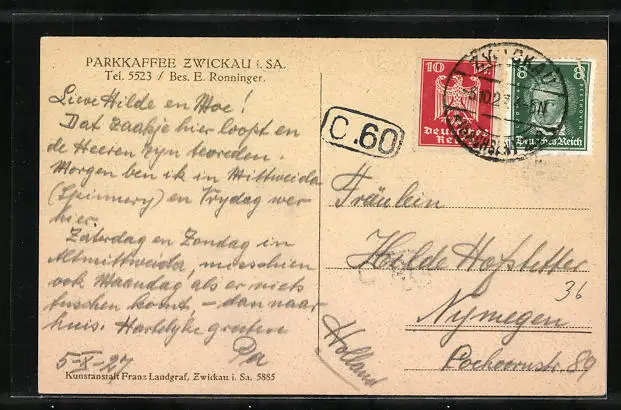 PARKKAFFEE ZWICKAU i. SA.
Tel. 5523 / Bes. E. Ronninger.
Lieve Hilde en Moe!
Dat zaakje hier loopt en
de Heeren zyn tevreden.
Morgen ben ik in Mittweida
(Spinnery) en Vrydag weer
hier.
Zaterdag en Zondag in
Altmittweida, misschien
ook Maandag als er niets
tusschen komt, – dan naar
huis. Hartelyke groeten
Pa
5-X-27
Kunstanstalt Franz Landgraf, Zwickau i. Sa. 5885
C.60
10
Deutsches
Reich
8 8
BEETHOVEN
Deutsches Reich
ZWICKAU
Fräulein
Hilde Hofstetter
36
Nymegen
89
Holland